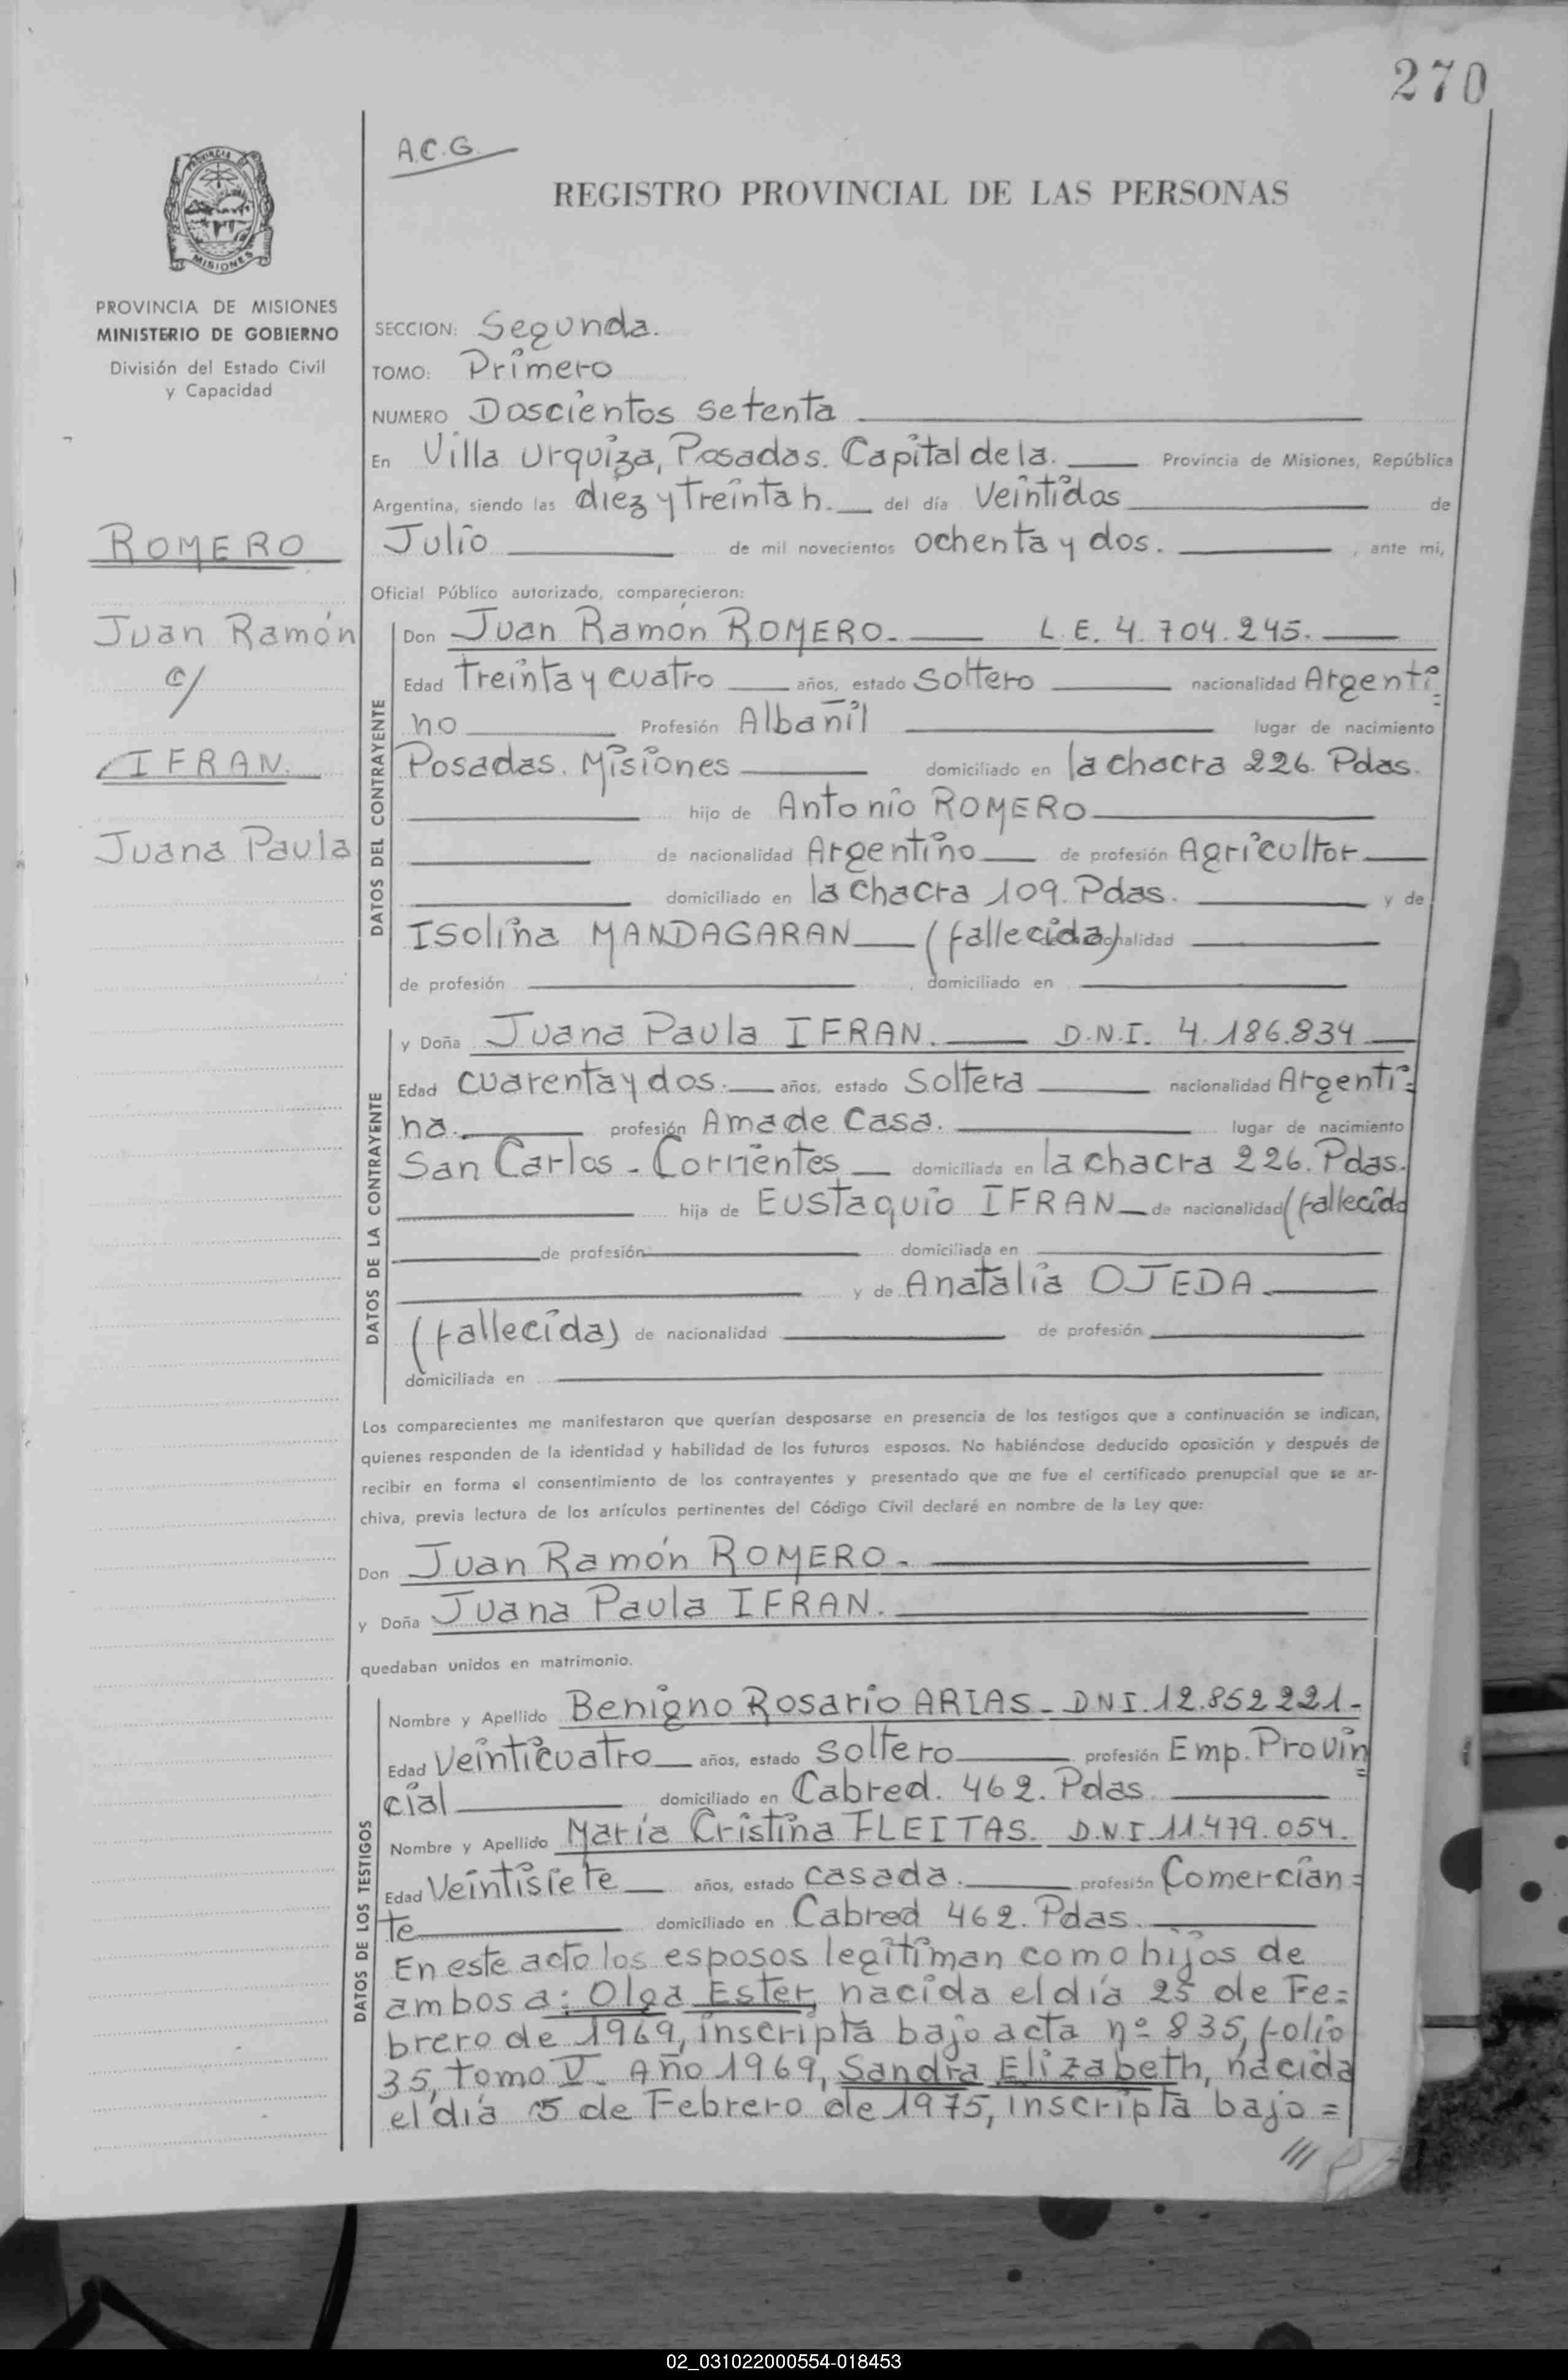 270
A.C.G.
REGISTRO PROVINCIAL DE LAS PERSONAS
PROVINCIA DE MISIONES
MINISTERIO DE GOBIERNO
División del Estado Civil
y Capacidad
ROMERO
Juan Ramón
c/
IFRAN.
Juana Paula
SECCION: Segunda.
TOMO: Primero
NUMERO Doscientos setenta
En Villa Urquiza, Posadas. Capital de la. Provincia de Misiones, República
Argentina, siendo las diez y treinta h. del día Veintidos de
Julio de mil novecientos ochenta y dos. , ante mi,
Oficial Público autorizado, comparecieron:
DATOS DEL CONTRAYENTE
Don Juan Ramón ROMERO. L.E. 4.704.245.
Edad Treinta y cuatro años, estado Soltero nacionalidad Argenti=
no Profesión Albañil lugar de nacimiento
Posadas. Misiones domiciliado en la chacra 226. Pdas.
hijo de Antonio ROMERO
de nacionalidad Argentino de profesión Agricultor
domiciliado en la chacra 109. Pdas. y de
Isolina MANDAGARAN (fallecida) de nacionalidad
de profesión , domiciliado en
DATOS DE LA CONTRAYENTE
y Doña Juana Paula IFRAN. D.N.I. 4.186.834
Edad cuarenta y dos. años, estado Soltera nacionalidad Argenti=
na. profesión Ama de Casa. lugar de nacimiento
San Carlos - Corrientes domiciliada en la chacra 226. Pdas.
hija de Eustaquio IFRAN de nacionalidad (fallecido
de profesión domiciliada en
y de Anatalia OJEDA.
(fallecida) de nacionalidad de profesión
domiciliada en
Los comparecientes me manifestaron que querían desposarse en presencia de los testigos que a continuación se indican,
quienes responden de la identidad y habilidad de los futuros esposos. No habiéndose deducido oposición y después de
recibir en forma el consentimiento de los contrayentes y presentado que me fue el certificado prenupcial que se ar-
chiva, previa lectura de los artículos pertinentes del Código Civil declaré en nombre de la Ley que:
Don Juan Ramón ROMERO.
y Doña Juana Paula IFRAN.
quedaban unidos en matrimonio.
DATOS DE LOS TESTIGOS
Nombre y Apellido Benigno Rosario ARIAS - DNI. 12.852221-
Edad Veinticuatro años, estado soltero profesión Emp. Provin=
cial domiciliado en Cabred. 462. Pdas
Nombre y Apellido María Cristina FLEITAS. D.N.I. 11.479.054.
Edad Veintisiete años, estado casada. profesión Comercian=
te domiciliado en Cabred 462. Pdas.
En este acto los esposos legitiman como hijos de
ambos a: Olga Ester, nacida el día 25 de Fe=
brero de 1969, inscripta bajo acta nº 835, folio
35, tomo V. Año 1969, Sandra Elizabeth, nacida
el día 5 de Febrero de 1975, inscripta bajo =
///
02_031022000554-018453